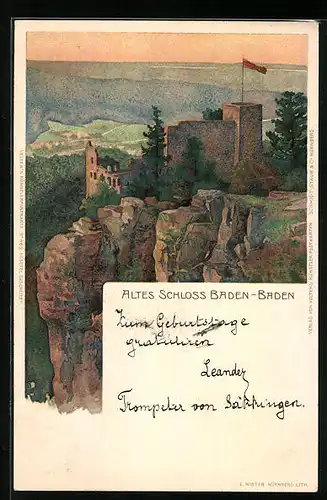 ALTES SCHLOSS BADEN-BADEN
Zum Geburtstage
gratulieren
Leander
Trompeter von Säkkingen.
E. NISTER NÜRNBERG LITH.